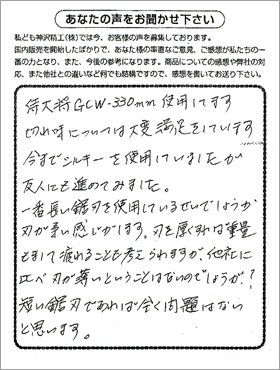 あなたの声をお聞かせ下さい
私ども神沢精工(株)では今、お客様の声を募集しております。
国内販売を開始したばかりで、あなた様の率直なご意見、ご感想が私たちの一
番の力となり、また、今後の参考になります。商品についての感想や弊社の対
応、また他社との違いなど何でも結構ですので、感想を書いてお送り下さい。
侍大将GCW-330mm使用してます
切れ味については大変満足をしています
今までシルキーを使用していましたが
友人にも進めてみました。
一番長い鋸刃を使用しているせいでしょうか
刃が柔い感じがします。刃を厚くすれば重量
もまして疲れることも考えられますが他社に
比べ刃が薄いということはないのでしょうか?
短い鋸刃であれば全く問題はない
と思います。